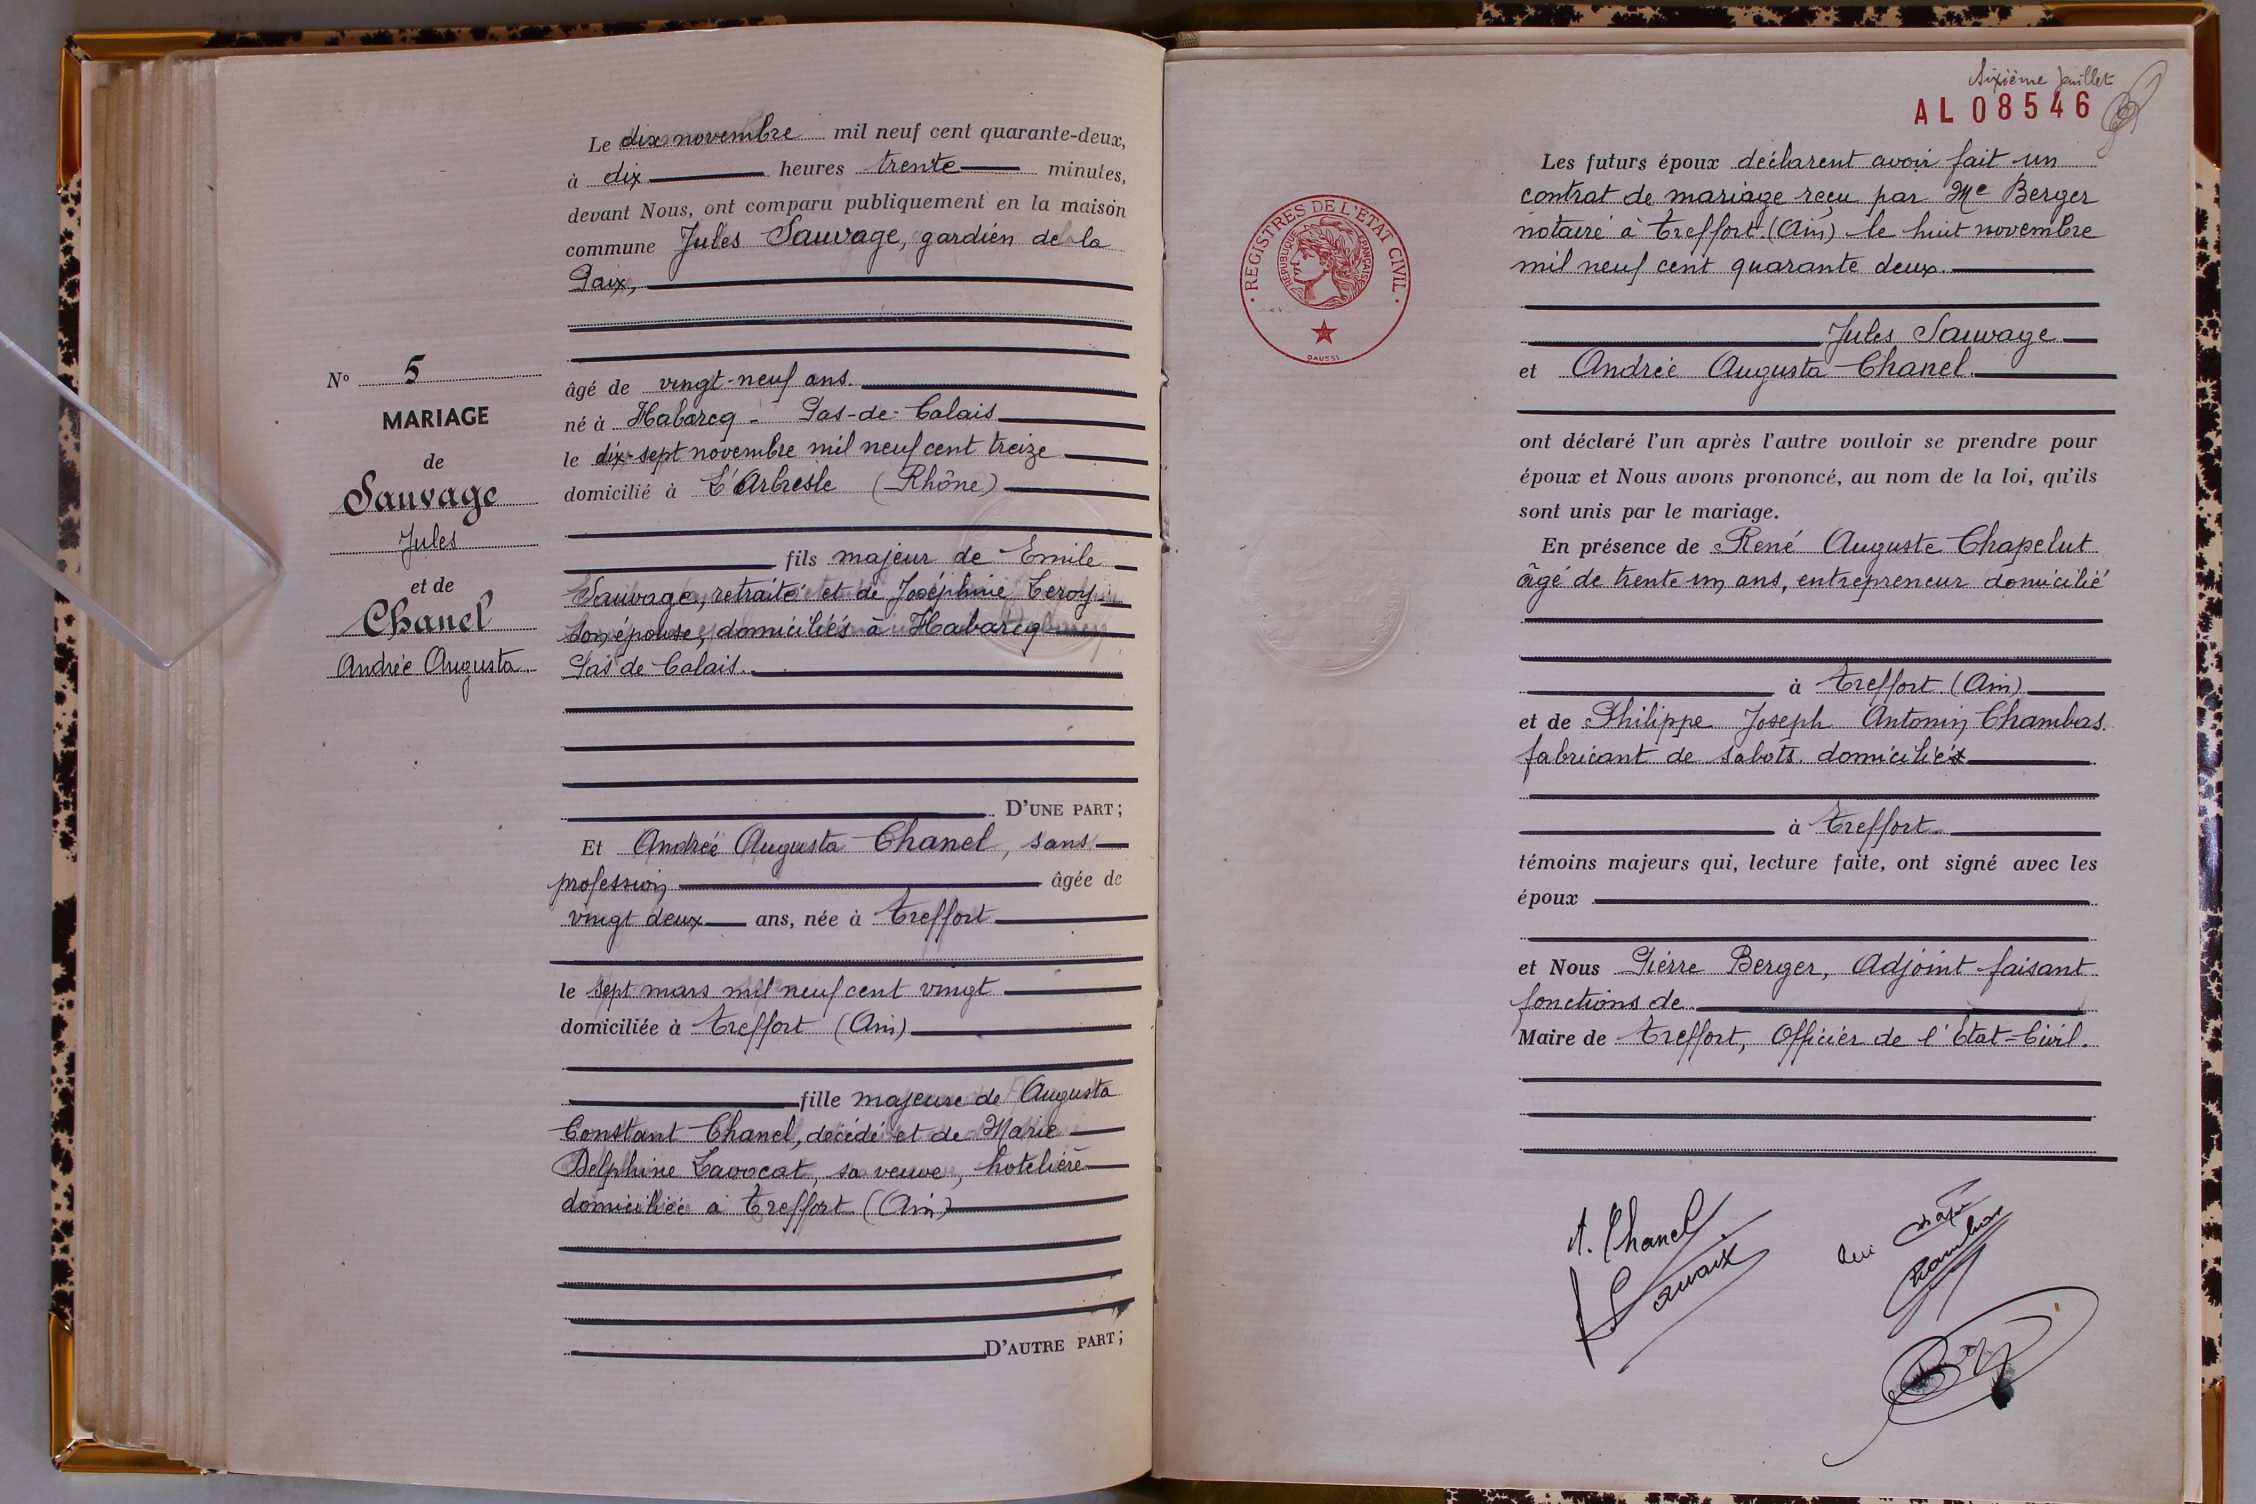 Le dix novembre mil neuf cent quarante-deux,
à dix heures trente minutes,
devant Nous, ont comparu publiquement en la maison
commune Jules Sauvage, gardien de la
Paix,
N° 5
MARIAGE
de
Sauvage
Jules
et de
Chanel
Andrée Augusta
âgé de vingt-neuf ans.
né à Habarcq - Pas-de-Calais
le dix-sept novembre mil neuf cent treize
domicilié à L'Arbresle (Rhône)
fils majeur de Emile
Sauvage, retraité et de Joséphine Leroy
son épouse, domiciliés à Habarcq
Pas de Calais.
D'UNE PART;
Et Andrée Augusta Chanel, sans
profession âgée de
vingt deux ans, née à Treffort
le sept mars mil neuf cent vingt
domiciliée à Treffort (Ain)
fille majeure de Augusta
Constant Chanel, décédé et de Marie
Delphine Lavocat, sa veuve, hotelière
domiciliée a Treffort (Ain)
D'AUTRE PART;
Sixième feuillet
AL08546
REGISTRES DE L'ETAT CIVIL
REPUBLIQUE FRANÇAISE
DAUSSI
Les futurs époux déclarent avoir fait un
contrat de mariage reçu par Me Berger
notaire à Treffort (Ain) le huit novembre
mil neuf cent quarante deux.
Jules Sauvage
et Andrée Augusta Chanel
ont déclaré l'un après l'autre vouloir se prendre pour
époux et Nous avons prononcé, au nom de la loi, qu'ils
sont unis par le mariage.
En présence de René Auguste Chapelut
âgé de trente un ans, entrepreneur domicilié
à Treffort (Ain)
et de Philippe Joseph Antonin Chambas.
fabricant de sabots domicilié
à Treffort
témoins majeurs qui, lecture faite, ont signé avec les
époux
et Nous Pierre Berger, Adjoint faisant
fonctions de
Maire de Treffort, Officier de l'Etat-Civil.
A. Chanel